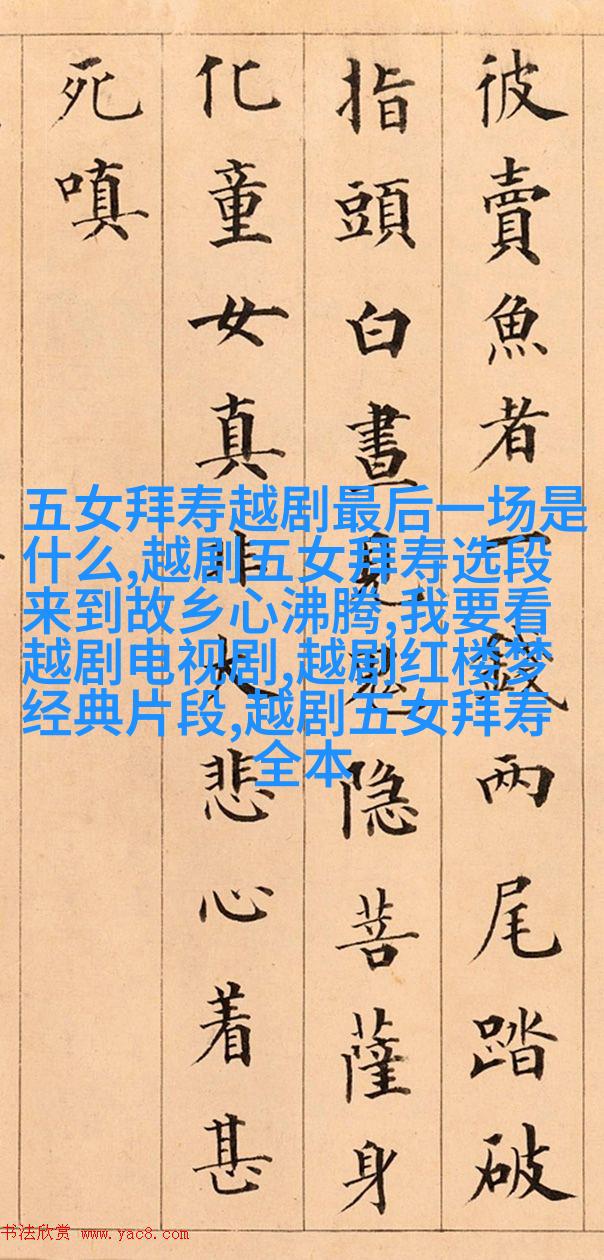 彼賣魚者一錢兩尾踏破
指頭白晝見鬼隐菩薩身
化童女真非大悲心着甚
死嗔
五女拜寿越剧最后一场是
什么,越剧五女拜寿选段
来到故乡心沸腾,我要看
越剧电视剧,越剧红楼梦
经典片段,越剧五女拜寿
全本
书法欣赏 www.yac8.com